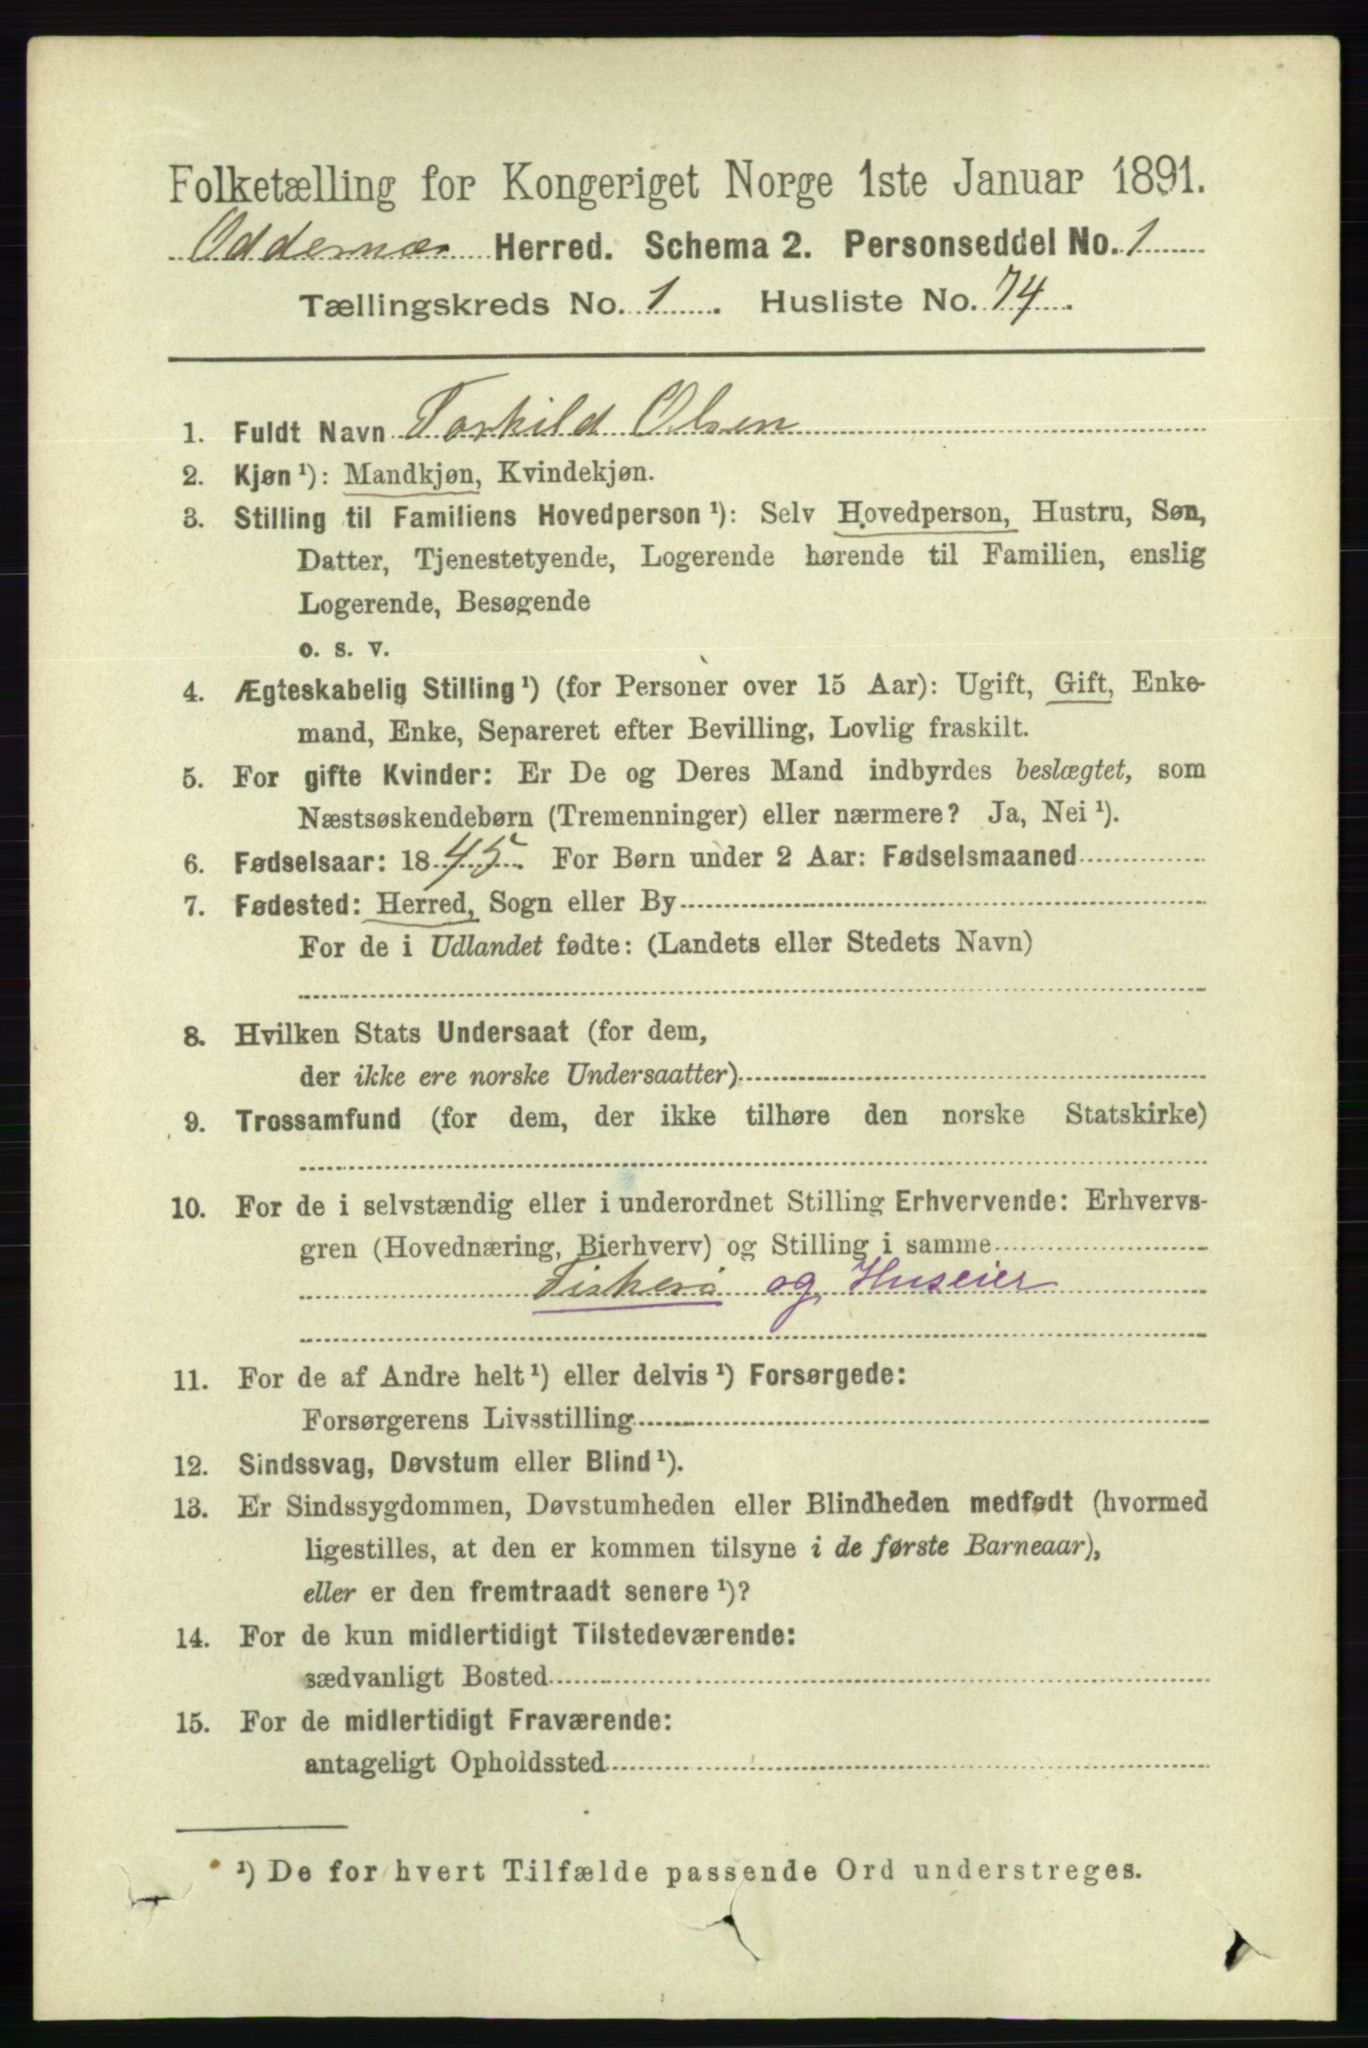 Folketælling for Kongeriget Norge 1ste Januar 1891.
Oddernæs Herred. Schema 2. Personseddel No. 1
Tællingskreds No. 1. Husliste No. 74.
1. Fuldt Navn Torkild Olsen
2. Kjøn ¹): Mandkjøn, Kvindekjøn.
3. Stilling til Familiens Hovedperson ¹): Selv Hovedperson, Hustru, Søn,
Datter, Tjenestetyende, Logerende hørende til Familien, enslig
Logerende, Besøgende
o. s. v.
4. Ægteskabelig Stilling ¹) (for Personer over 15 Aar): Ugift, Gift, Enke-
mand, Enke, Separeret efter Bevilling, Lovlig fraskilt.
5. For gifte Kvinder: Er De og Deres Mand indbyrdes beslægtet, som
Næstsøskendebørn (Tremenninger) eller nærmere? Ja, Nei ¹).
6. Fødselsaar: 1845. For Børn under 2 Aar: Fødselsmaaned
7. Fødested: Herred, Sogn eller By
For de i Udlandet fødte: (Landets eller Stedets Navn)
8. Hvilken Stats Undersaat (for dem,
der ikke ere norske Undersaatter)
9. Trossamfund (for dem, der ikke tilhøre den norske Statskirke)
10. For de i selvstændig eller i underordnet Stilling Erhvervende: Erhvervs-
gren (Hovednæring, Bierhverv) og Stilling i samme
Fiskeri og Huseier
11. For de af Andre helt ¹) eller delvis ¹) Forsørgede:
Forsørgerens Livsstilling
12. Sindssvag, Døvstum eller Blind ¹).
13. Er Sindssygdommen, Døvstumheden eller Blindheden medfødt (hvormed
ligestilles, at den er kommen tilsyne i de første Barneaar),
eller er den fremtraadt senere ¹)?
14. For de kun midlertidigt Tilstedeværende:
sædvanligt Bosted
15. For de midlertidigt Fraværende:
antageligt Opholdssted
¹) De for hvert Tilfælde passende Ord understreges.